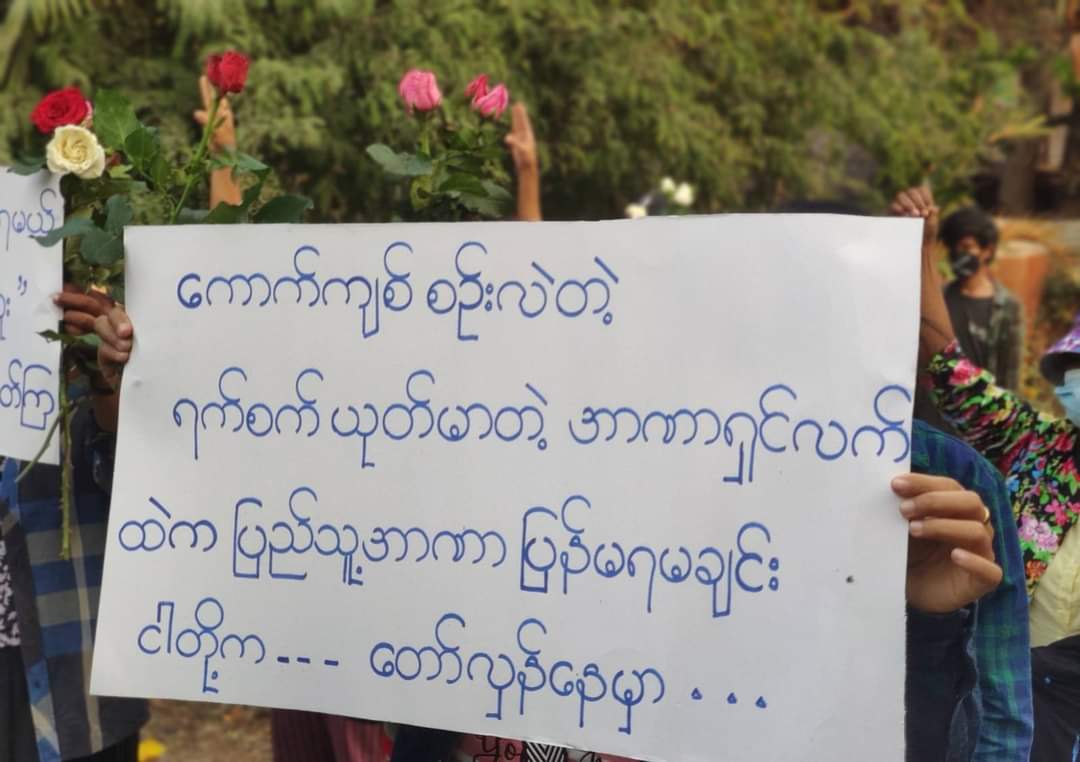 ရမယ်
း"
တ်ကြ
ကောက်ကျစ် စဉ်းလဲတဲ့
ရက်စက် ယုတ်မာတဲ့ အာဏာရှင်လက်
ထဲက ပြည်သူ့အာဏာ ပြန်မရမချင်း
ငါတို့က --- တော်လှန်နေမှာ ...